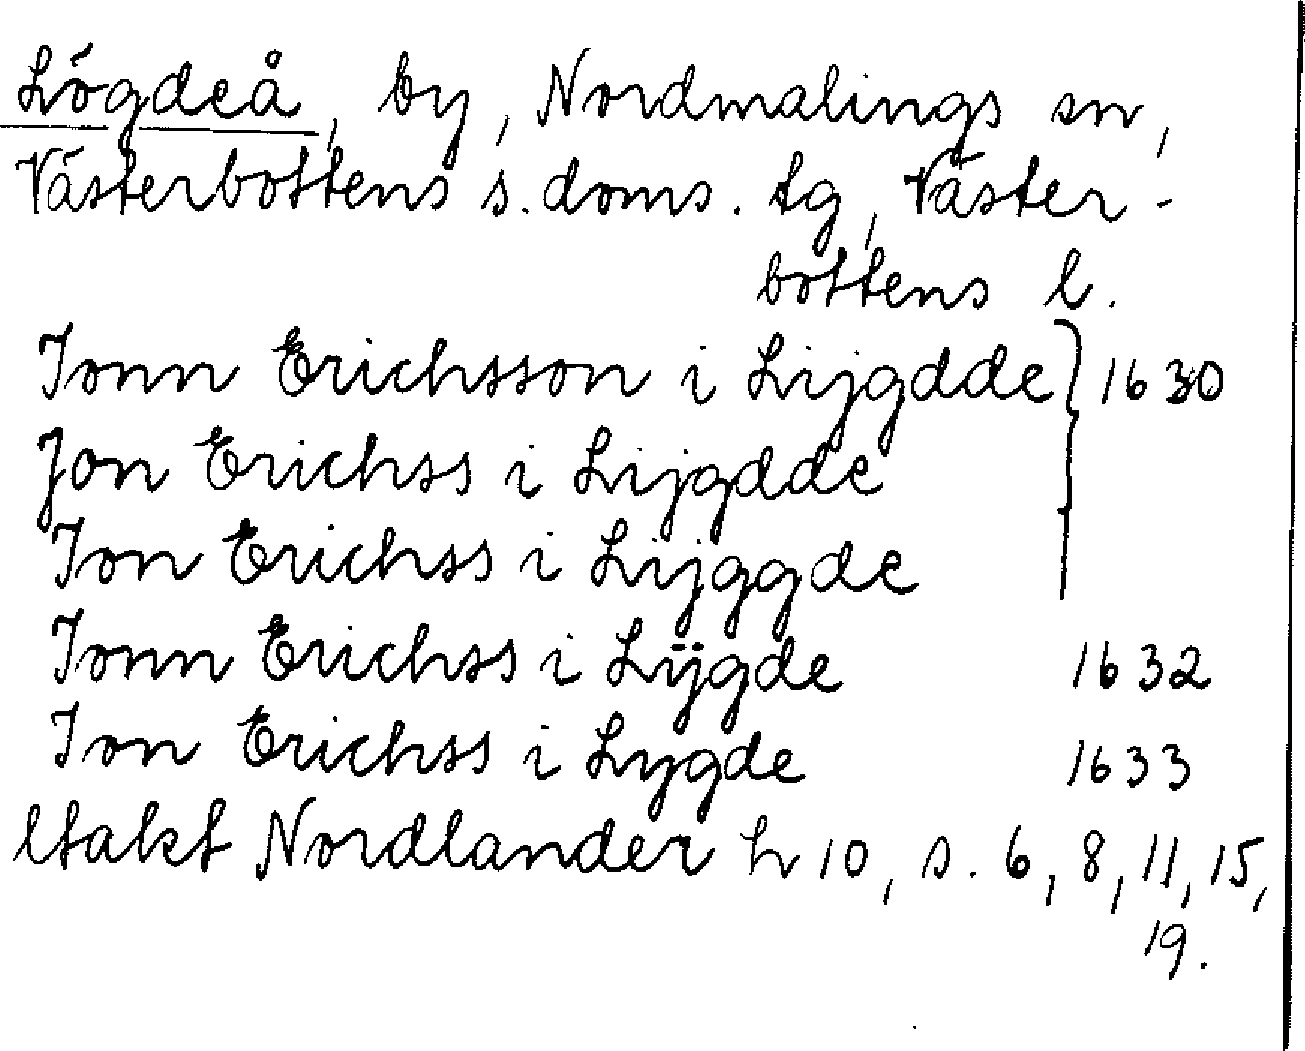 Lögdeå, by, Nordmalings sn,
Västerbottens s. doms. tg, Väster-
bottens l.
Jonn Erichsson i Lijgdde } 1630
Jon Erichss i Lijgdde
Jon Erichss i Lijggde
Jonn Erichss i Lÿgde 1632
Jon Erichss i Lygde 1633
Utakt Nordlander h 10, s. 6, 8, 11, 15,
19.